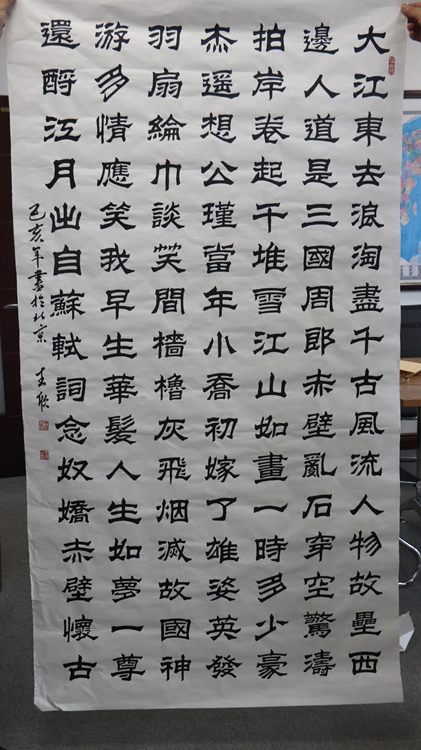 大江東去浪淘盡千古風流人物故壘西
邊人道是三國周郎赤壁亂石穿空驚濤
拍岸卷起千堆雪江山如畫一時多少豪
杰遥想公瑾當年小喬初嫁了雄姿英發
羽扇綸巾談笑間檣櫓灰飛烟滅故國神
游多情應笑我早生華髮人生如夢一尊
還酹江月出自蘇軾詞念奴嬌赤壁懷古
己亥年書於北京